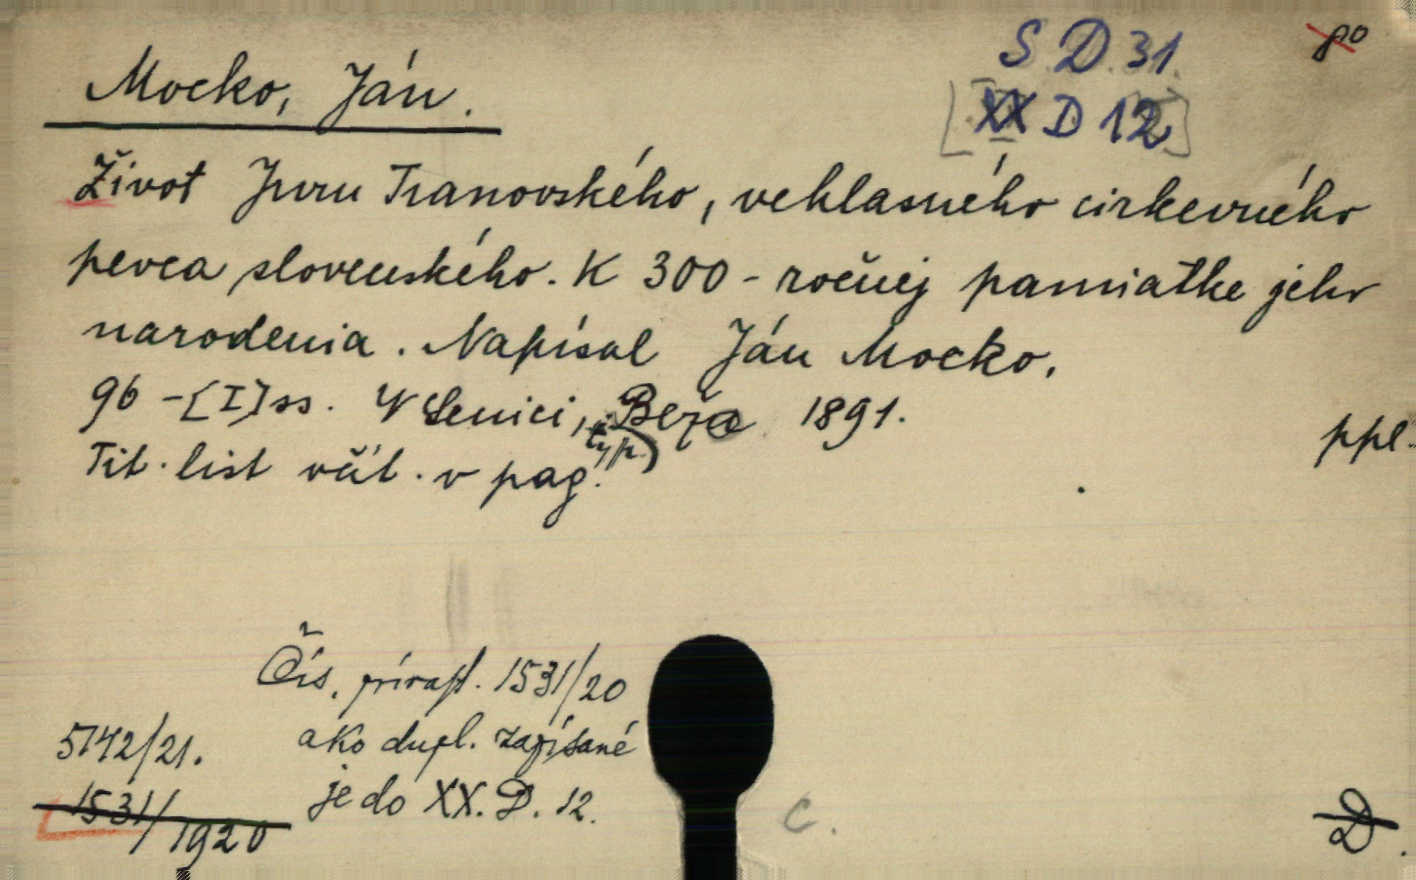 S D. 31.
8°
Mocko, Ján.
[XX D 12]
Život Jura Tranovského, vehlasného cirkevného
pevca slovenského. K 300-ročnej pamiatke jeho
narodenia. Napísal Ján Mocko.
96-[I] ss. V Senici, typ. Beža 1891.
ppl.
Tit. list včít. v pag.
Čís. prírast. 1531/20
5142/21. ako dupl. zapísané
1531/1920 je do XX. D. 12.
C.
D.